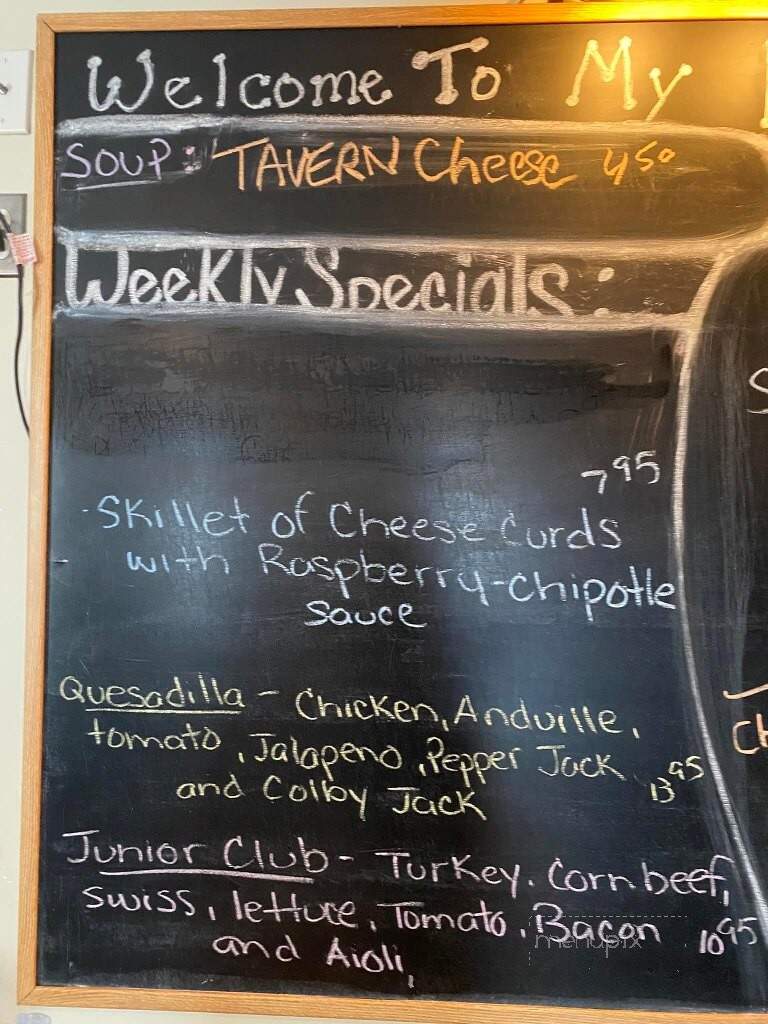 Welcome To My
SOUP: TAVERN Cheese 4 50
Weekly Specials:
7 95
·Skillet of Cheese Curds
with Raspberry-chipotle
sauce
Quesadilla - Chicken, Anduville,
tomato, Jalapeno, Pepper Jack
and Colby Jack 13 95
Junior Club - Turkey. Corn beef,
swiss, lettuce, Tomato, Bacon 10 95
and Aioli,
menupix